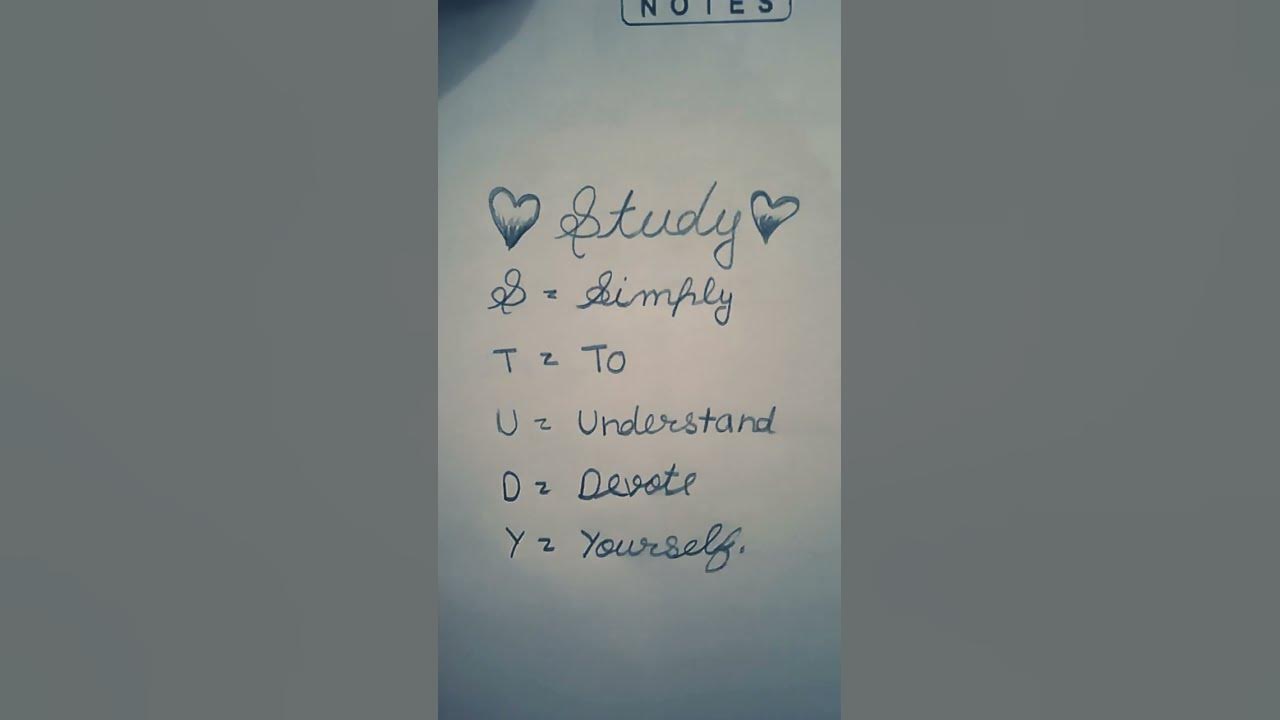 NOTES
Study
S = Simply
T = To
U = Understand
D = Devote
Y = Yourself.